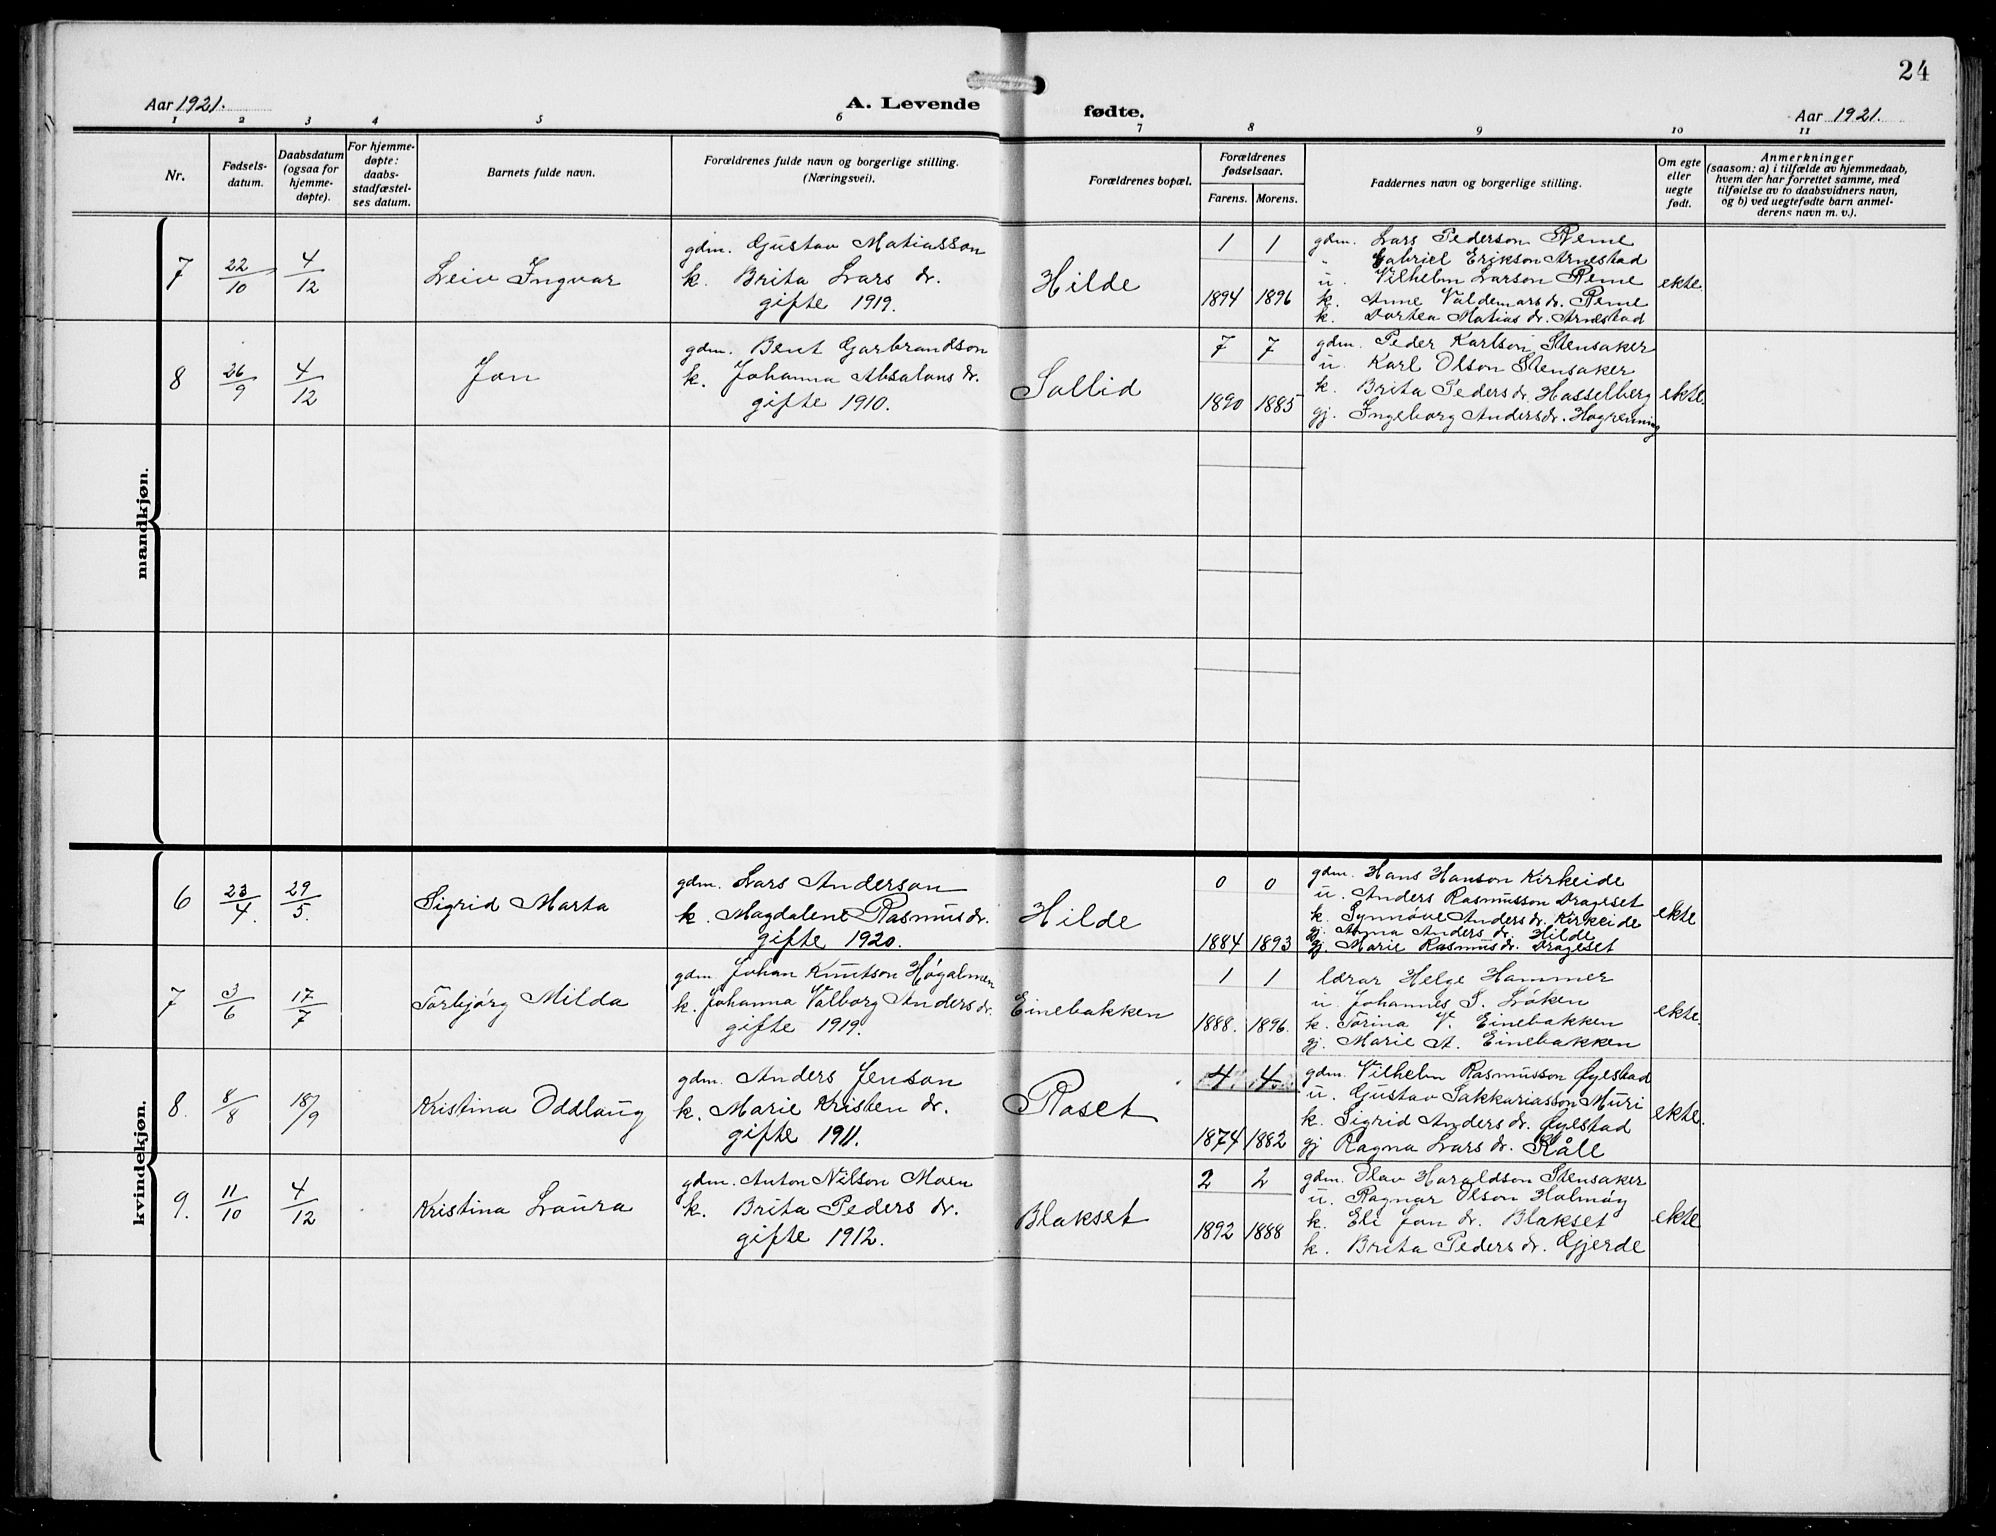 24
Aar 1921.
A. Levende
fødte.
Aar 1921.
1 2 3 4 5 6 7 8 9 10 11
Nr.
Fødsels-
datum.
Daabsdatum
(ogsaa for
hjemme-
døpte).
For hjemme-
døpte:
daabs-
stadfæstel-
ses datum.
Barnets fulde navn.
Forældrenes fulde navn og borgerlige stilling.
(Næringsvei).
Forældrenes bopæl.
Forældrenes
fødselsaar.
Farens. Morens.
Faddernes navn og borgerlige stilling.
Om egte
eller
uegte
født.
Anmerkninger
(saasom: a) i tilfælde av hjemmedaab,
hvem der har forrettet samme, med
tilføielse av to daabsvidners navn,
og b) ved uegtefødte barn anmel-
derens navn m. v.).
mandkjøn.
7
22/10
4/12
Leiv Ingvar
gdm. Gustav Matiasson
k. Brita Lars dr.
gifte 1919.
Hilde
1 1
1894 1896
gdm. Lars Pederson Reme
" Gabriel Erikson Arnestad
u. Vilhelm Larson Reme
k. Anne Valdemars dr. Reme
k. Dortea Matias dr. Arnestad
ekte.
8
26/9
4/12
Jon
gdm. Bent Garbrandson
k. Johanna Absalons dr.
gifte 1910.
Sollid
7 7
1890 1885
gdm. Peder Karlson Stensaker
u. Karl Olson Stensaker
k. Brita Peders dr. Hasselberg
gj. Ingeborg Anders dr. Hogrenning
ekte.
kvindekjøn.
6
23/4.
29/5.
Sigrid Marta
gdm. Lars Anderson
k. Magdalene Rasmus dr.
gifte 1920.
Hilde
0 0
1884 1893
gdm. Hans Hanson Kirkeide
u. Anders Rasmusson Drageset
k. Synnøve Anders dr. Kirkeide
gj. Anna Anders dr. Hilde
gj. Marie Rasmus dr. Drageset
ekte
7
3/6
17/7
Torbjørg Milda
gdm. Johan Knutson Høgalmen
k. Johanna Valborg Anders dr.
gifte 1919.
Einebakken
1 1
1888. 1896.
lærar Helge Hammer
u. Johannes S. Løken
k. Torina V. Einebakken
gj. Marie A. Einebakken
ekte.
8.
8/8
18/9
Kristina Oddlaug
gdm. Anders Jenson
k. Marie Kristen dr.
gifte 1911.
Raset
4. 4.
1874 1882
gdm. Vilhelm Rasmusson Øylstad
u. Gustav Sakkariasson Muri
k. Sigrid Anders dr. Øylstad
gj Ragna Lars dr. Råle
ekte.
9.
11/10
4/12
Kristina Laura
gdm. Anton Nilson Moen
k. Brita Peders dr.
gifte 1912.
Blakset
2 2
1892 1888
gdm. Olav Haraldson Stensaker
u. Ragnar Olson Holmøy
k. Eli Jon dr. Blakset
k. Brita Peders dr. Gjerde
ekte